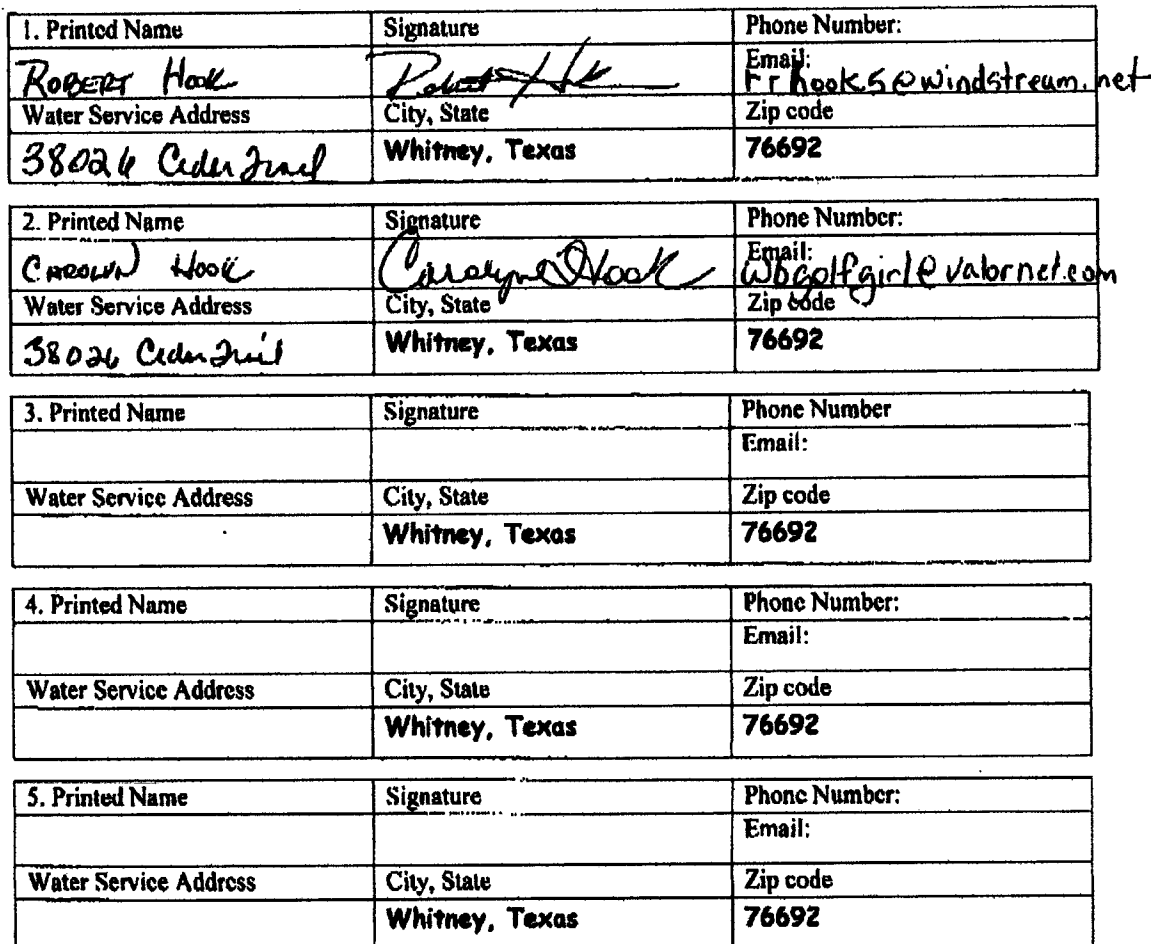 1. Printed Name Signature Phone Number:
Email:
ROBERT Hook Robert Hook rrhook5@windstream.net
Water Service Address City, State Zip code
38026 Ceder Trail Whitney, Texas 76692
2. Printed Name Signature Phone Number:
Email:
CAROLYN Hook Carolyn Hook wbgolfgirl@valornet.com
Water Service Address City, State Zip code
38026 Ceder Trail Whitney, Texas 76692
3. Printed Name Signature Phone Number
Email:
Water Service Address City, State Zip code
Whitney, Texas 76692
4. Printed Name Signature Phone Number:
Email:
Water Service Address City, State Zip code
Whitney, Texas 76692
5. Printed Name Signature Phone Number:
Email:
Water Service Address City, State Zip code
Whitney, Texas 76692